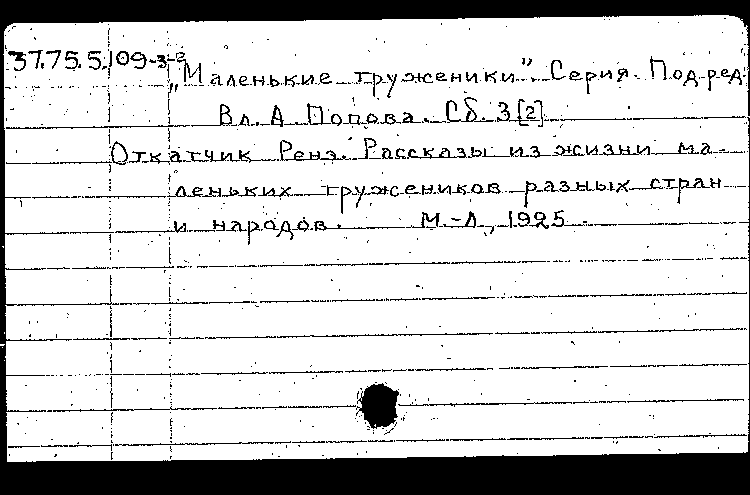 37.75.5.109-3-е
„Маленькие труженики”. Серия. Под ред.
Вл. А. Попова. Сб. 3[2]
Откатчик Ренэ. Рассказы из жизни ма-
леньких тружеников разных стран
и народов. М.-Л., 1925.